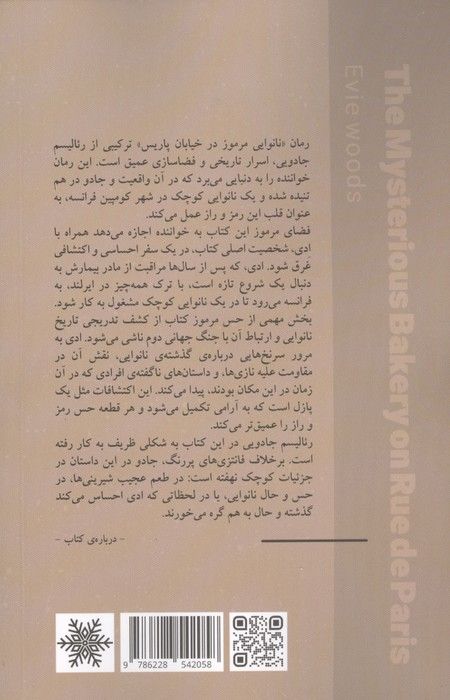 The Mysterious Bakery on Rue de Paris
Evie woods
رمان «نانوایی مرموز در خیابان پاریس» ترکیبی از رئالیسم
جادویی، اسرار تاریخی و فضاسازی عمیق است. این رمان
خواننده را به دنیایی می‌برد که در آن واقعیت و جادو در هم
تنیده شده و یک نانوایی کوچک در شهر کومپین فرانسه، به
عنوان قلب این رمز و راز عمل می‌کند.
فضای مرموز این کتاب به خواننده اجازه می‌دهد همراه با
ادی، شخصیت اصلی کتاب، در یک سفر احساسی و اکتشافی
غَرق شود. ادی، که پس از سال‌ها مراقبت از مادر بیمارش به
دنبال یک شروع تازه است، با ترک همه‌چیز در ایرلند، به
فرانسه می‌رود تا در یک نانوایی کوچک مشغول به کار شود.
بخش مهمی از حس مرموز کتاب از کشف تدریجی تاریخ
نانوایی و ارتباط آن با جنگ جهانی دوم ناشی می‌شود. ادی به
مرور سرنخ‌هایی درباره‌ی گذشته‌ی نانوایی، نقش آن در
مقاومت علیه نازی‌ها، و داستان‌های ناگفته‌ی افرادی که در آن
زمان در این مکان بودند، پیدا می‌کند. این اکتشافات مثل یک
پازل است که به آرامی تکمیل می‌شود و هر قطعه حس رمز
و راز را عمیق‌تر می‌کند.
رئالیسم جادویی در این کتاب به شکلی ظریف به کار رفته
است. برخلاف فانتزی‌های پررنگ، جادو در این داستان در
جزئیات کوچک نهفته است: در طعم عجیب شیرینی‌ها، در
حس و حال نانوایی، یا در لحظاتی که ادی احساس می‌کند
گذشته و حال به هم گره می‌خورند.
- درباره‌ی کتاب -
9 786228 542058